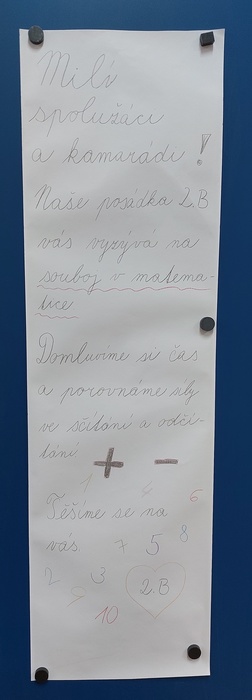 Milí
spolužáci
a kamarádi !
Naše posádka 2.B
vás vyzývá na
souboj v matema-
tice
Domluvíme si čas
a porovnáme síly
ve sčítání a odčí-
tání + -
1 4 6
Těšíme se na
vás. 7 5 8
2 9 3 2.B
10